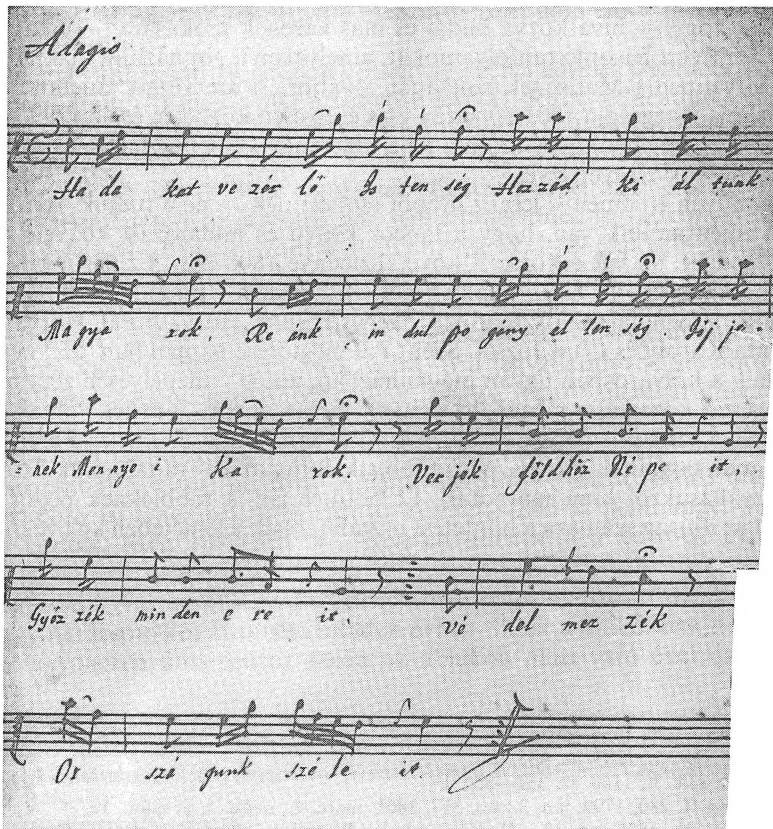 Adagio
Ha da kat ve zér lő Is ten ség Hozzád ki ál tunk
Ma gya rok, Re ánk in dul po gány el len ség Jőj je
nek Men nye i Ka rok. Ver jék földhöz Né pe it,
Győz zék min den e re it, vé del mez zék
Or szá gunk szé le it